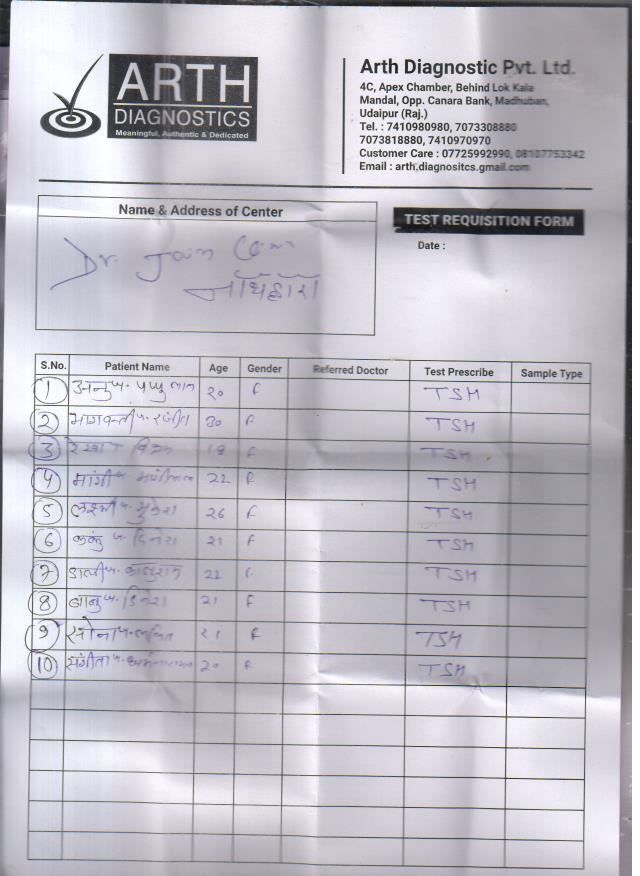 ARTH
DIAGNOSTICS
Meaningful, Authentic & Dedicated
Arth Diagnostic Pvt. Ltd.
4C, Apex Chamber, Behind Lok Kala
Mandal, Opp. Canara Bank, Madhuban,
Udaipur (Raj.)
Tel. : 7410980980, 7073308880
7073818880, 7410970970
Customer Care : 07725992990, 08107753342
Email : arth.diagnositcs.gmail.com
Name & Address of Center
TEST REQUISITION FORM
Date :
Dr. Jain
S.No. Patient Name Age Gender Referred Doctor Test Prescribe Sample Type
1 अनु प. पप्पु लाल २० F TSH
2 भागवन्ती प. रंजीत 30 F TSH
3 रेखा 19 F TSH
4 मांगी प. 22 F TSH
5 लक्ष्मी प. मुकेश 26 F TSH
6 कंकु प. दिनेश 21 F TSH
7 22 F TSH
8 बानु प. दिनेश 21 F TSH
9 प. ललित 21 F TSH
10 संगीता प. 20 F TSH